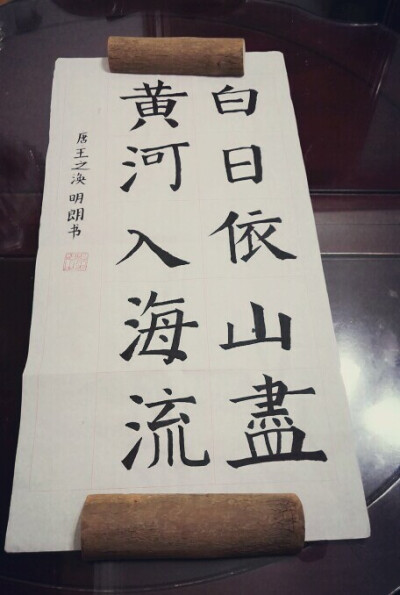 白日依山盡
黄河入海流
唐王之涣 明朗书